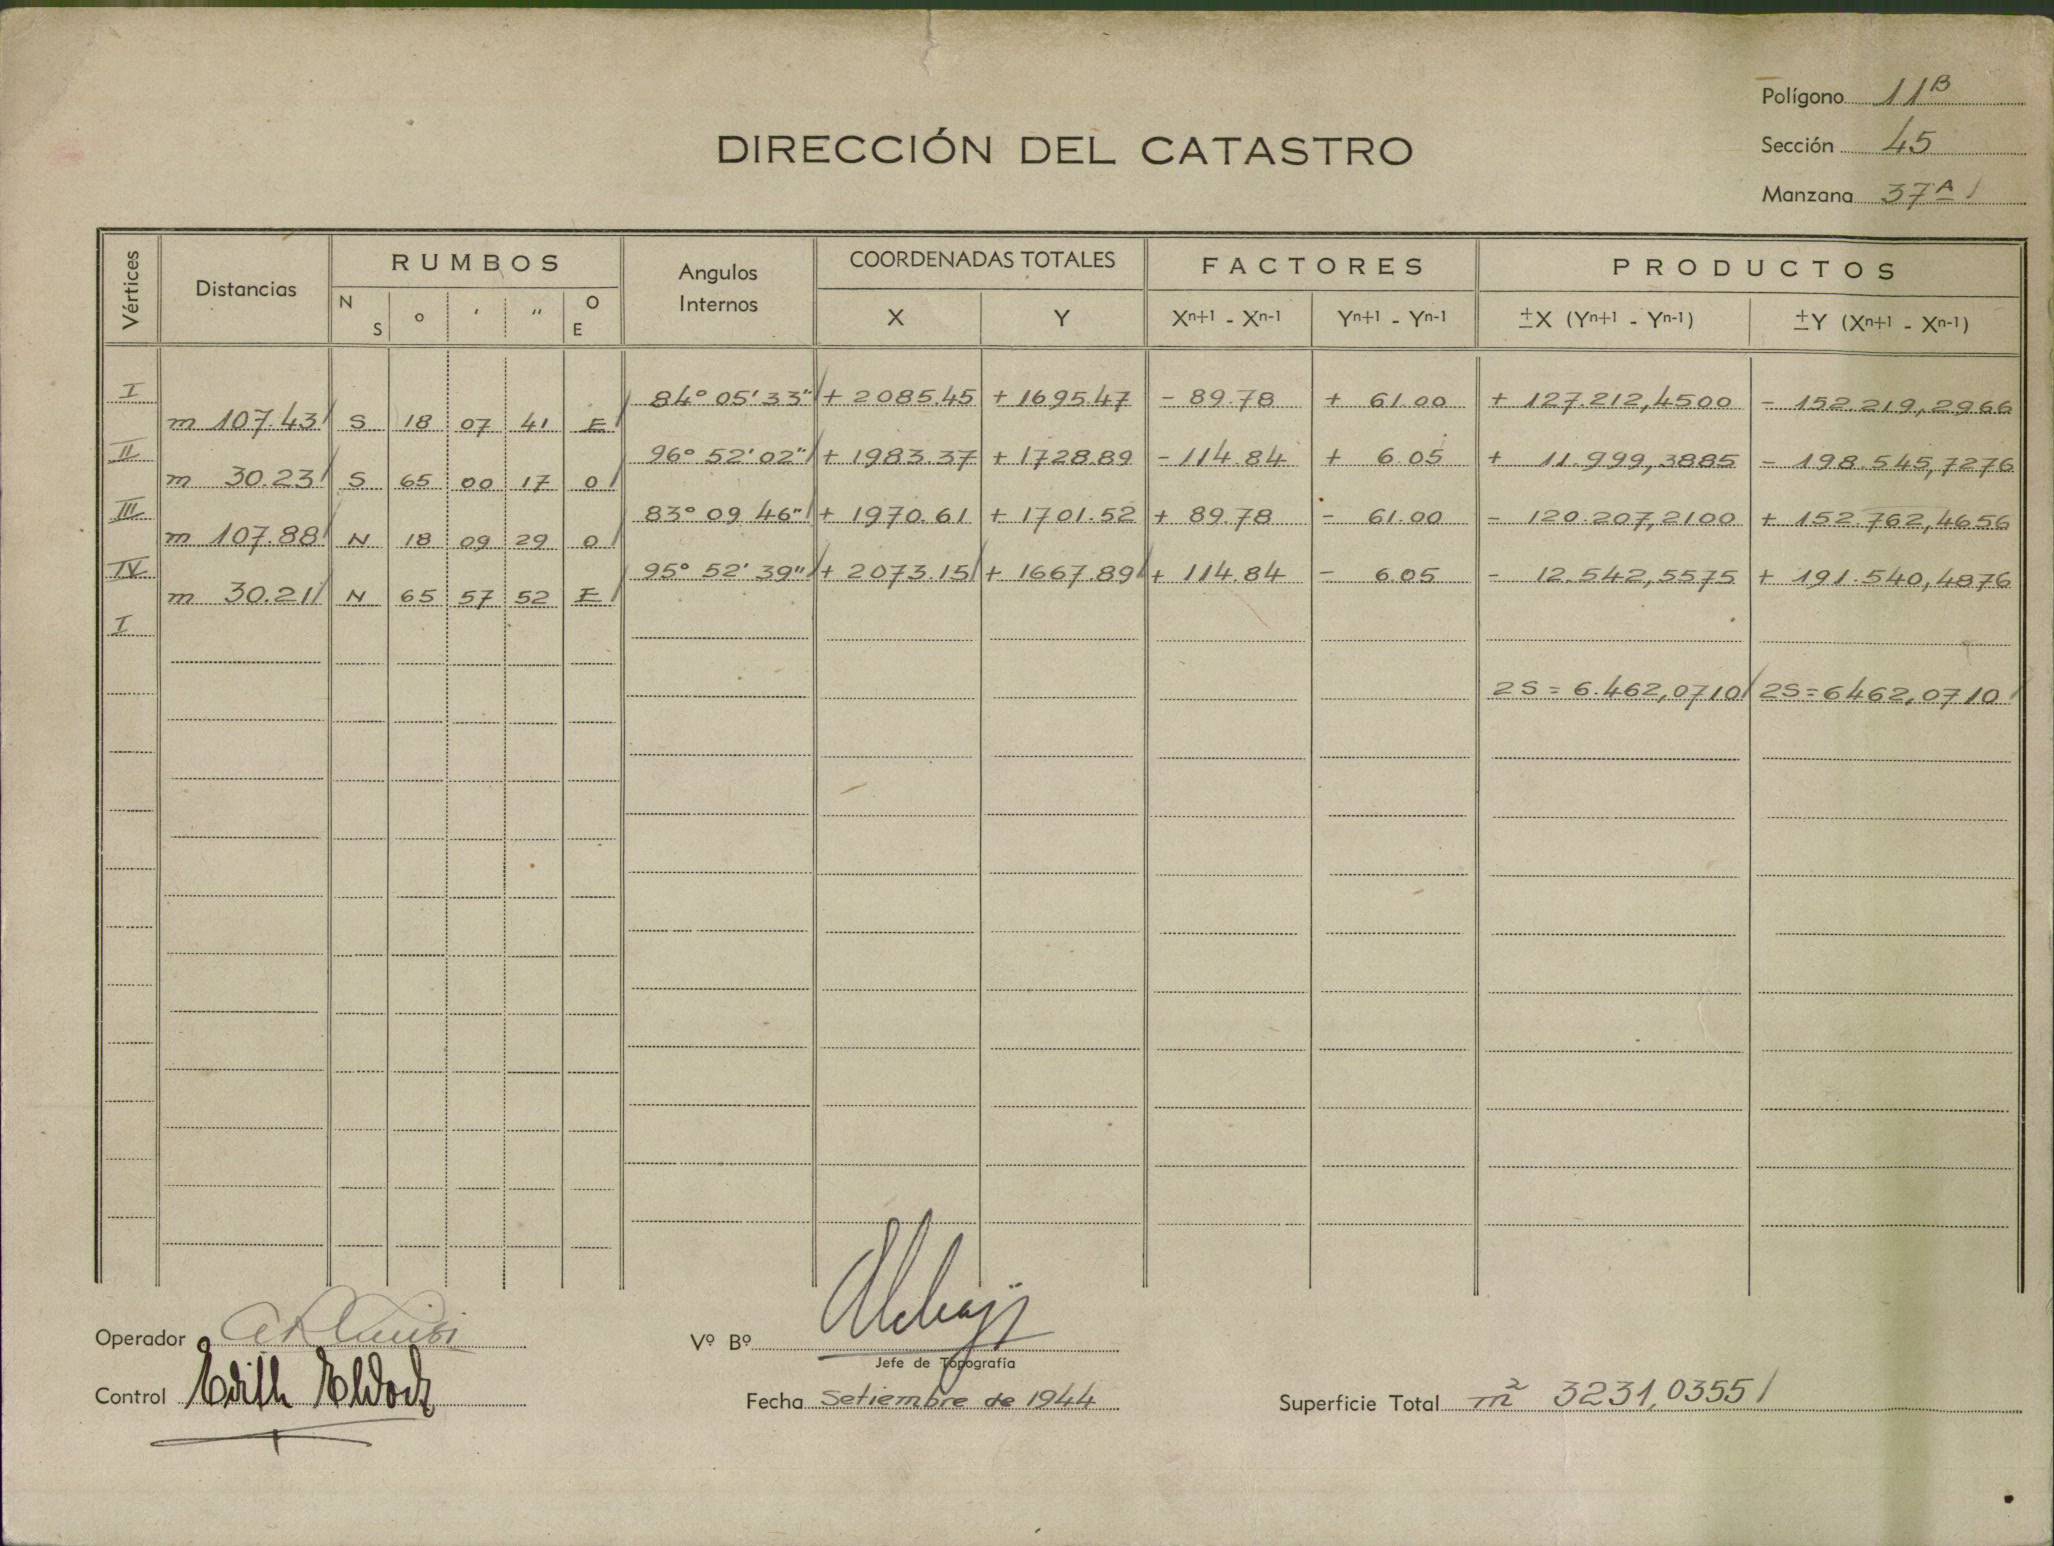 Polígono 11ᴮ
DIRECCIÓN DEL CATASTRO
Sección 45
Manzana 37ᴬ
Vértices Distancias RUMBOS Angulos Internos COORDENADAS TOTALES FACTORES PRODUCTOS
N S ° ' " O E X Y Xⁿ⁺¹ - Xⁿ⁻¹ Yⁿ⁺¹ - Yⁿ⁻¹ ±X (Yⁿ⁺¹ - Yⁿ⁻¹) ±Y (Xⁿ⁺¹ - Xⁿ⁻¹)
I 84° 05' 33" + 2085.45 + 1695.47 - 89.78 + 61.00 + 127.212,4500 - 152.219,2966
m 107.43 S 18 07 41 E
II 96° 52' 02" + 1983.37 + 1728.89 - 114.84 + 6.05 + 11.999,3885 - 198.545,7276
m 30.23 S 65 00 17 O
III 83° 09 46" + 1970.61 + 1701.52 + 89.78 - 61.00 - 120.207,2100 + 152.762,4656
m 107.88 N 18 09 29 O
IV 95° 52' 39" + 2073.15 + 1667.89 + 114.84 - 6.05 - 12.542,5575 + 191.540,4876
m 30.21 N 65 57 52 E
I
2S = 6.462,0710 2S = 6462,0710
Operador
Vº Bº
Jefe de Topografía
Control Edith
Fecha Setiembre de 1944
Superficie Total m² 3231,0355